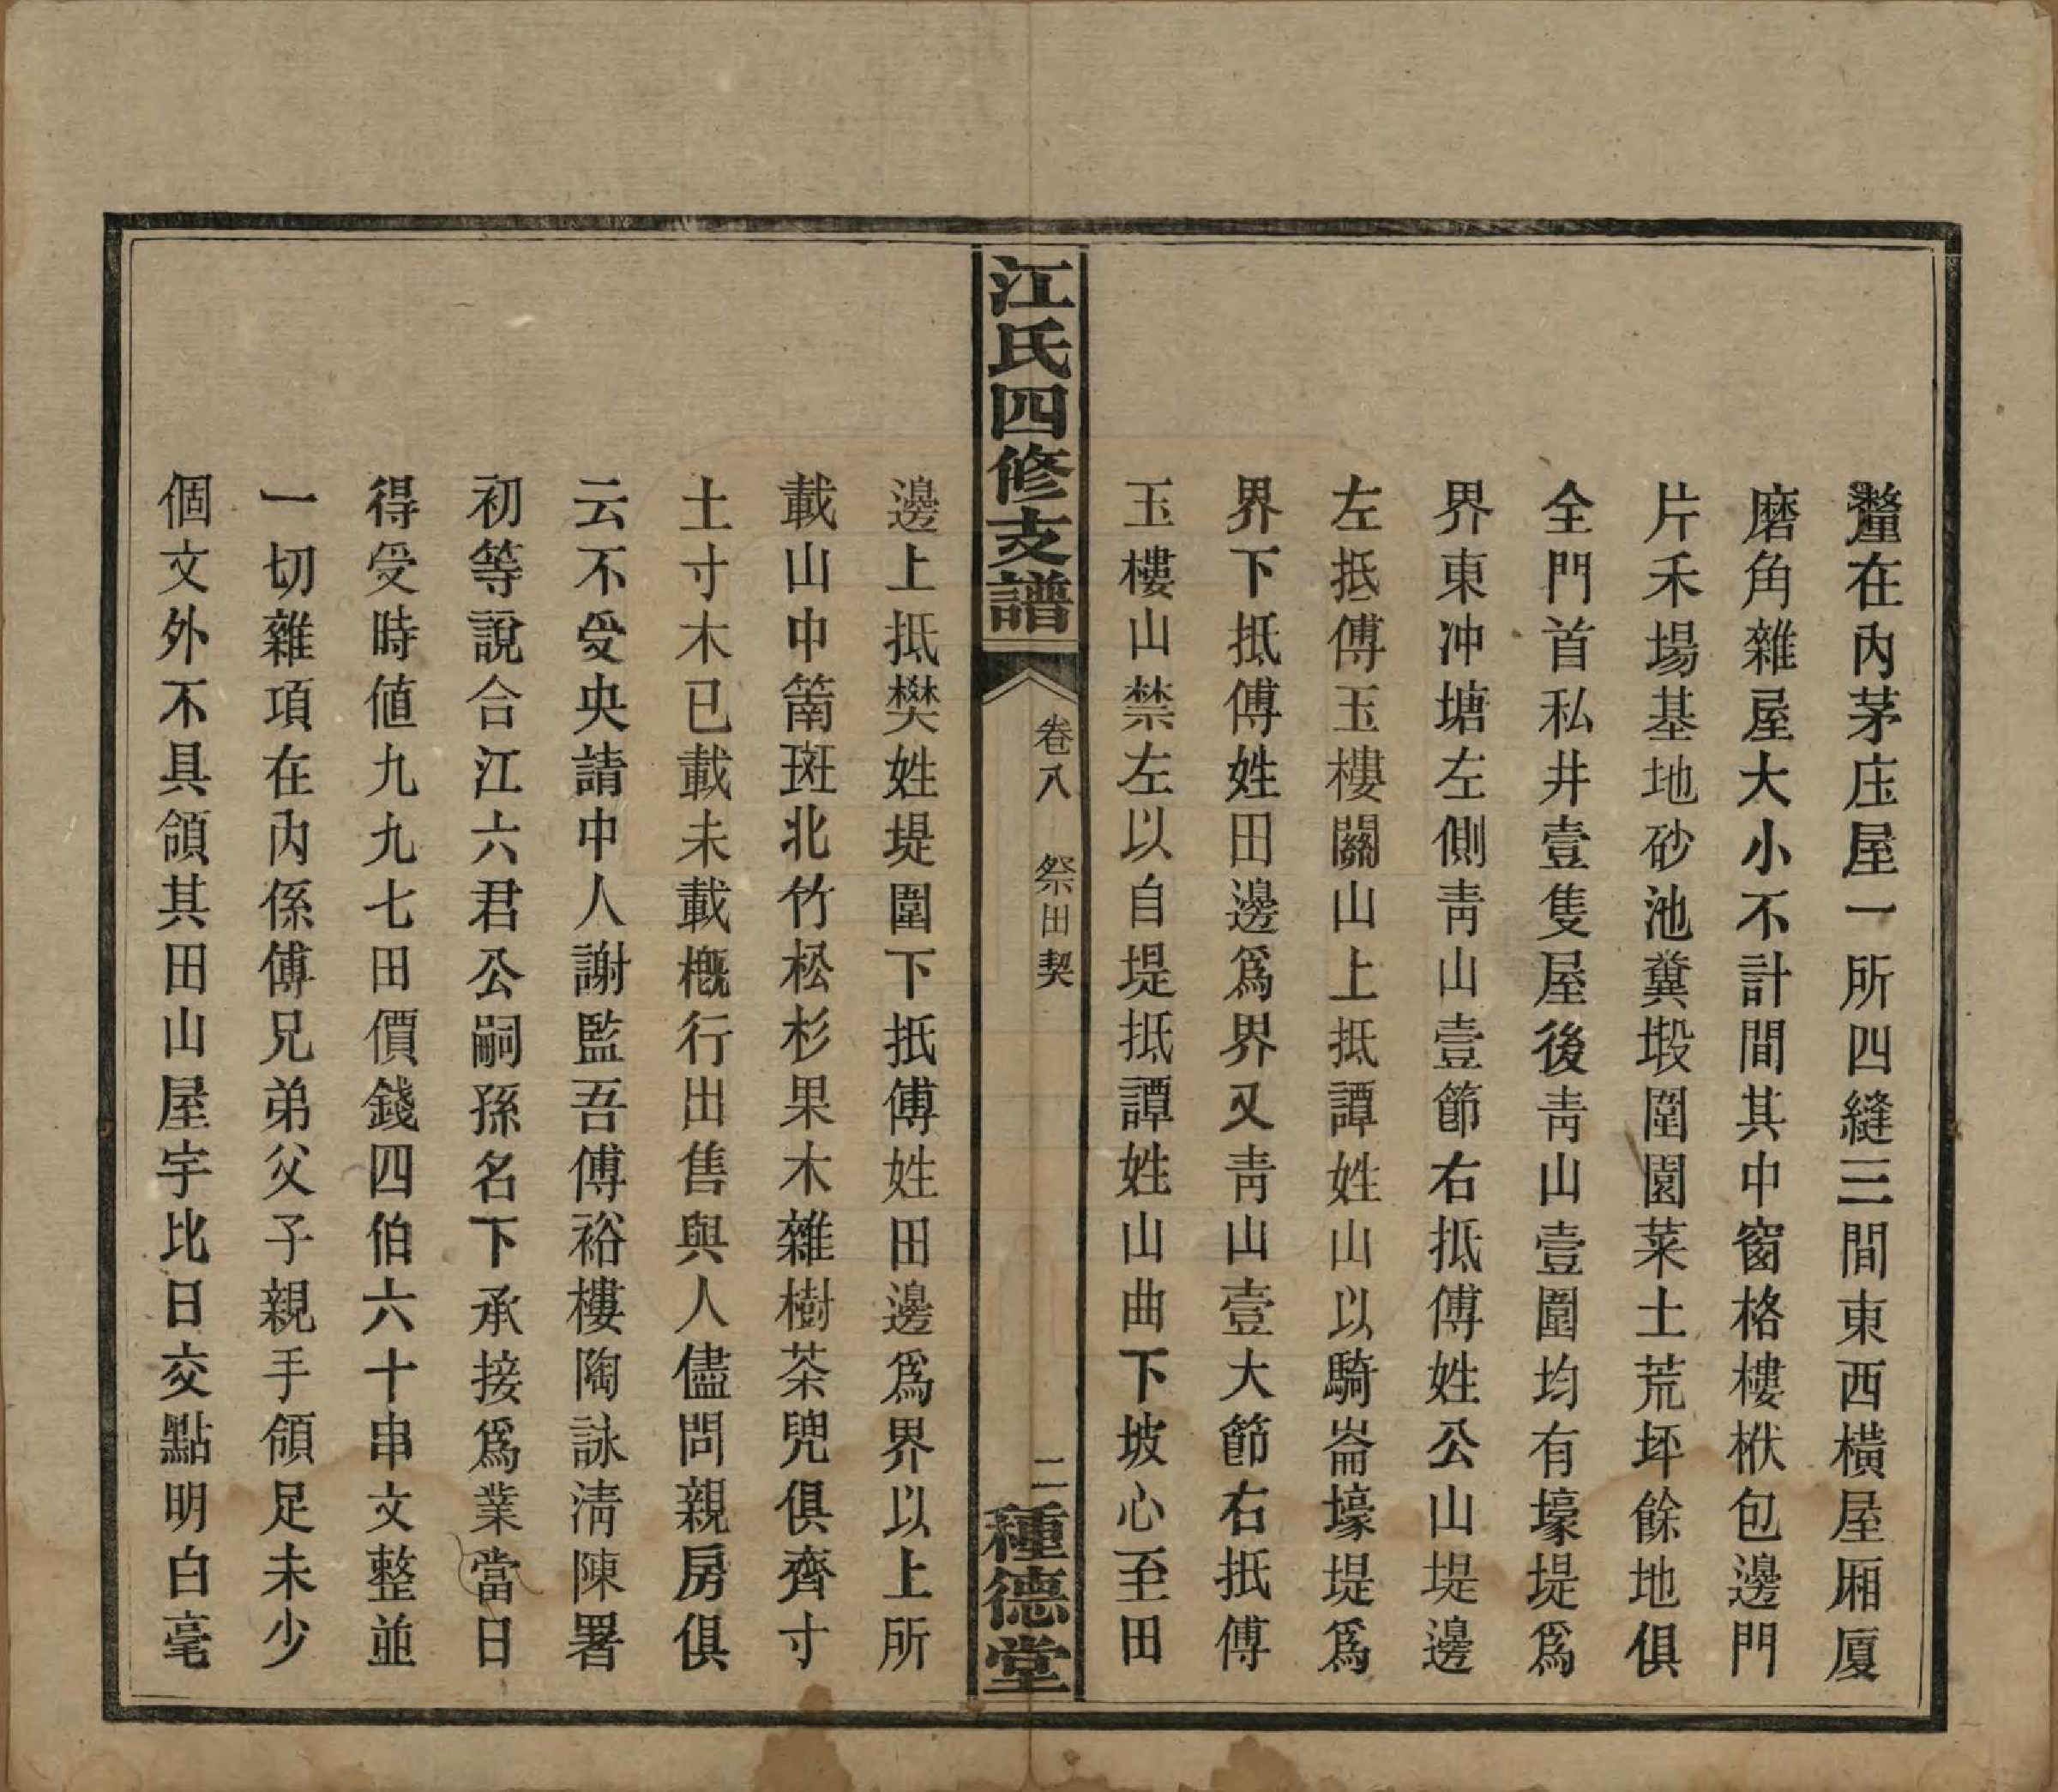 蓥在內茅庄屋一所四縫三間東西橫屋廂厦
磨角雜屋大小不計間其中窗格樓栿包邊門
片禾場基地砂池糞塅圍園菜土荒坪餘地俱
全門首私井壹隻屋後靑山壹圍均有壕堤爲
界東冲塘左側靑山壹節右抵傅姓公山堤邊
左抵傅玉樓關山上抵譚姓山以騎崙壕堤爲
界下抵傅姓田邊爲界又靑山壹大節右抵傅
玉樓山禁左以自堤抵譚姓山曲下坡心至田
江氏四修支譜
卷八 祭田契
二
種德堂
邊上抵樊姓堤圍下抵傅姓田邊爲界以上所
載山中䈒斑北竹松杉果木雜樹茶兜俱齊寸
土寸木已載未載槪行出售與人儘問親房俱
云不受央請中人謝監吾傅裕樓陶詠淸陳署
初等說合江六君公嗣孫名下承接爲業當日
得受時値九九七田價錢四伯六十串文整並
一切雜項在內係傅兄弟父子親手領足未少
個文外不具領其田山屋宇比日交點明白毫